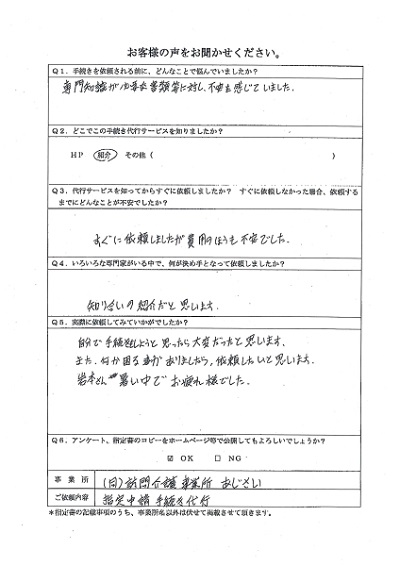 お客様の声をお聞かせください。
Q1．手続きを依頼される前に、どんなことで悩んでいましたか？
専門知識が必要な書類等に対し、不安を感じていました。
Q2．どこでこの手続き代行サービスを知りましたか？
HP 紹介 その他（ ）
Q3．代行サービスを知ってからすぐに依頼しましたか？ すぐに依頼しなかった場合、依頼する
までにどんなことが不安でしたか？
すぐに依頼しましたが費用のほうも不安でした。
Q4．いろいろな専門家がいる中で、何が決め手となって依頼しましたか？
知り合いの紹介だと思います。
Q5．実際に依頼してみていかがでしたか？
自分で手続きしようと思ったら大変だったと思います。
また、何か困る事がありましたら、依頼したいと思います。
岩本さん 暑い中でお疲れ様でした。
Q6．アンケート、指定書のコピーをホームページ等で公開してもよろしいでしょうか？
☑ OK □ NG
事業所 (同)訪問介護事業所 あじさい
ご依頼内容 指定申請手続き代行
*指定書の記載事項のうち、事業所名以外は伏せて掲載させて頂きます。